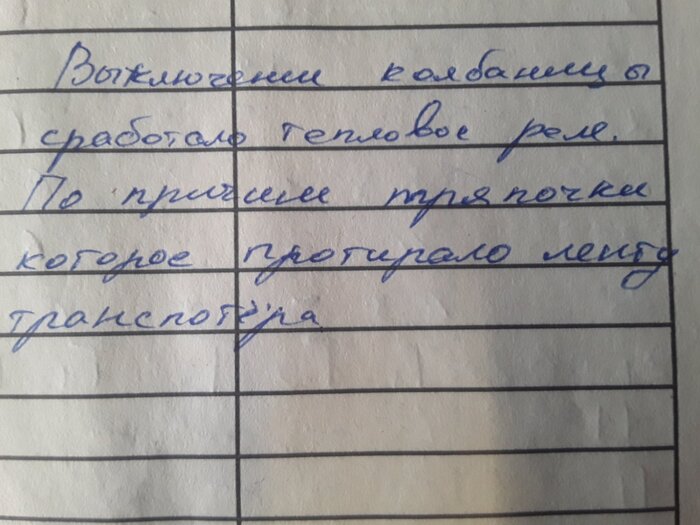 Выключении колбаницы
сработало тепловое реле.
По причини тряпочки
которое протирало ленту
транспотёра